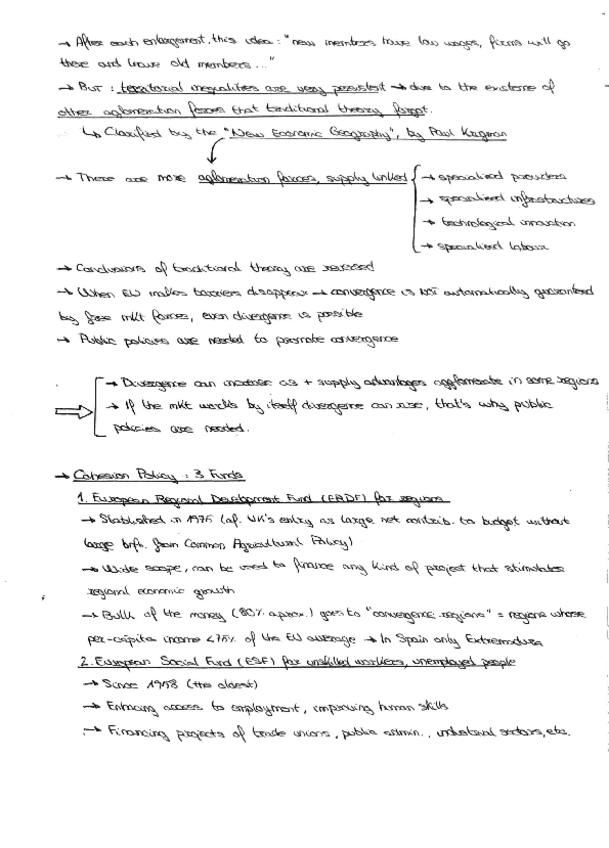 → After each enlargement, this idea: "new members have low wages, firms will go
there and leave old members..."
→ But: territorial inequalities are very persistent → due to the existence of
other aglomeration forces that traditional theory forgot.
↳ Classified by the "New Economic Geography", by Paul Krugman
→ There are more aglomeration forces, supply linked { → specialised providers
→ specialised infrastructures
→ technological innovation
→ specialised labour
→ Conclusions of traditional theory are reversed
→ When EU makes barriers disappear → convergence is NOT automatically guaranteed
by free mkt forces, even divergence is possible
→ Public policies are needed to promote convergence
→ Divergence can increase as + supply advantages agglomerate in some regions
→ If the mkt works by itself divergence can rise, that's why public
policies are needed.
→ Cohesion Policy: 3 Funds
1. European Regional Development Fund (ERDF) for regions
→ Stablished in 1975 (af. UK's entry as large net contrib. to budget without
large bnfs. from Common Agricultural Policy)
→ Wide scope, can be used to finance any kind of project that stimulates
regional economic growth
→ Bulk of the money (80% aprox.) goes to "convergence regions" = regions whose
per-capita income <75% of the EU average → In Spain only Extremadura
2. European Social Fund (ESF) for unskilled workers, unemployed people
→ Since 1958 (the oldest)
→ Enhacing access to employment, improving human skills
→ Financing projects of trade unions, public admin., industrial sectors, etc.